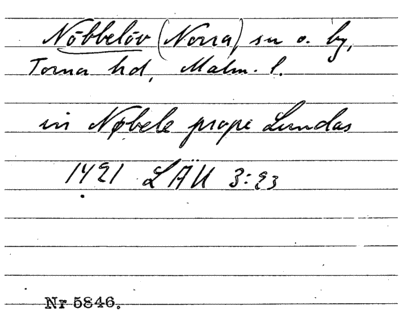 Nöbbelöv (Norra) sn o. by,
Torna hd, Malm. l.
in Nøbele prope Lundas
1421 LÄU 3:93
Nr 5846.